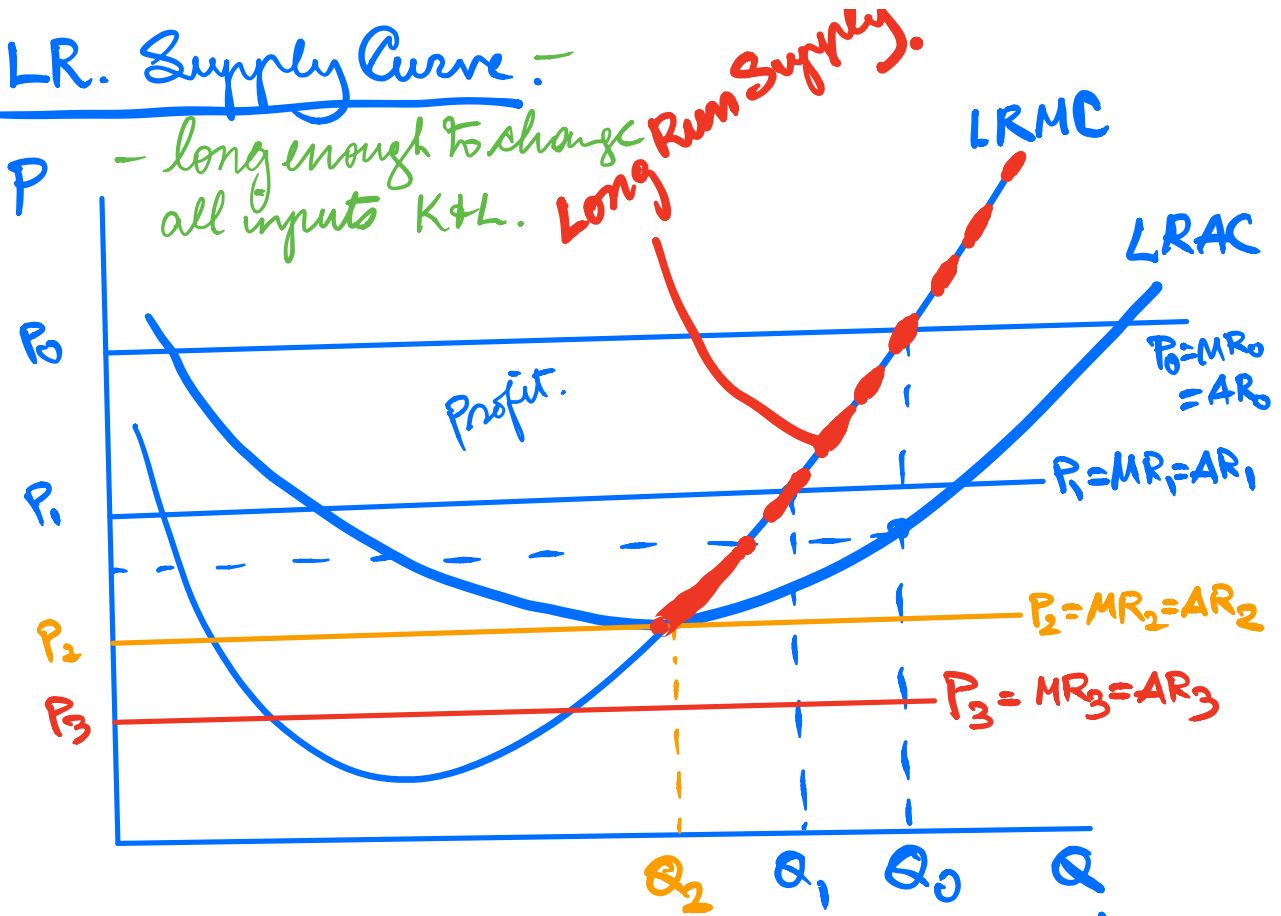 LR. Supply Curve :-
- long enough to change
all inputs K&L.
Long Run Supply.
LRMC
LRAC
P
P0
P0=MR0
=AR0
Profit.
P1
P1=MR1=AR1
P2
P2=MR2=AR2
P3
P3=MR3=AR3
Q2 Q1 Q0 Q